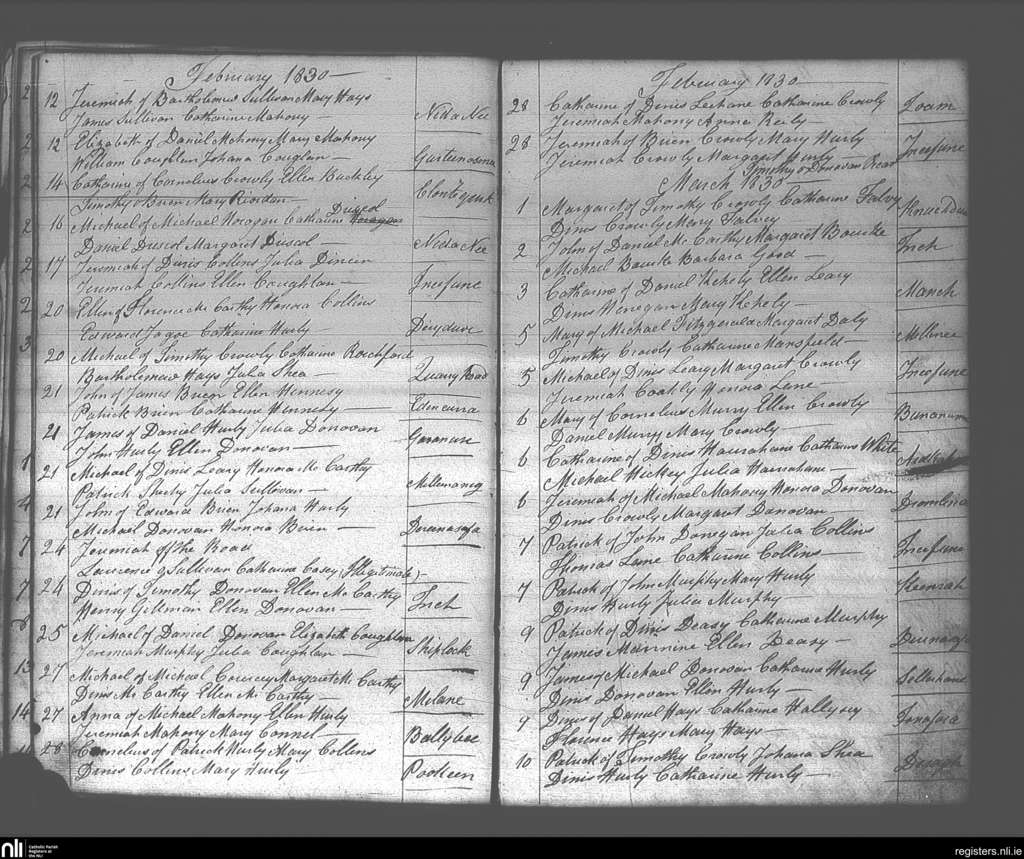 February 1830
12 Jeremiah of Bartholomew Sullivan Mary Hays
James Sullivan Catharine Mahony Nedanee
12 Elizabeth of Daniel Mahony Mary Mahony
William Coughlan Johana Coughlan
14 Catharine of Cornelius Crowly Ellen Buckley
Timothy Brien Mary Riordan
Driscol
16 Michael of Michael Horogan Catharine Horogan
Daniel Driscol Margaret Driscol Nedanee
17 Jeremiah of Dinis Collins Julia Dineen
Jeremiah Collins Ellen Coughlan Incefune
20 Ellen of Florence Mc Carthy Honora Collins
Edward Jagoe Catharine Hurly
20 Michael of Timothy Crowly Catharine Rochford
Bartholomew Hays Julia Shea Quarry Road
21 John of James Brien Ellen Hennesy
Patrick Brien Catharine Hennesy Edencurra
21 James of Daniel Hurly Julia Donovan
John Hurly Ellen Donovan
21 Michael of Dinis Leary Honora Mc Carthy
Patrick Hurly Julia Sullovan
21 John of Edward Brien Johana Hurly
Michael Donovan Honora Brien
24 Jeremiah off the Road
Laurence O Sullivan Catharine Casey (Illegitimate)
24 Dinis of Timothy Donovan Ellen Mc Carthy
Henry Gillman Ellen Donovan Inch
25 Michael of Daniel Donovan Elizabeth Coughlan
Jeremiah Murphy Julia Coughlan Shiplock
27 Michael of Michael Courcey Margaret Mc Carthy
Dinis Mc Carthy Ellen Mc Carthy Milane
27 Anna of Michael Mahony Ellen Hurly
Jeremiah Mahony Mary Connel Ballybee
28 Cornelius of Patrick Hurly Mary Collins
Dinis Collins Mary Hurly Pookeen
February 1830
28 Catharine of Dinis Leehane Catharine Crowly
Jeremiah Mahony Anna Reily Toam
28 Jeremiah of Brien Crowly Mary Hurly
Jeremiah Crowly Margaret Hurly Incefune
Timothy O Donovan
March 1830
1 Margaret of Timothy Crowly Catharine Falvey
Dinis Crowly Mary Falvey
2 John of Daniel Mc Carthy Margaret Bourke
Michael Bourke Barbara Good Inch
3 Catharine of Daniel Kehely Ellen Leary
Dinis Henegan Mary Kehely Manch
5 Mary of Michael Fitzgerald Margaret Daly
Timothy Crowly Catharine Mansfield
5 Michael of Dinis Leary Margaret Crowly
Jeremiah Coakly Honora Lane Incefune
6 Mary of Cornelius Murry Ellen Crowly
Daniel Murry Mary Crowly
6 Catharine of Dinis Hanrahane Catharine White
Michael Hickey Julia Hanrahane
6 Jeremiah of Michael Mahony Honora Donovan
Dinis Crowly Margaret Donovan
7 Patrick of John Donegan Julia Collins
Thomas Lane Catharine Collins Incefune
7 Patrick of John Murphy Mary Hurly
Dinis Hurly Julia Murphy
9 Patrick of Dinis Deasy Catharine Murphy
James Mannine Ellen Deasy
9 James of Michael Donovan Catharine Hurly
Dinis Donovan Ellen Hurly
9 Dinis of Daniel Hays Catharine Hallysey
Florence Hays Mary Hays
10 Patrick of Timothy Crowly Johana Shea
Dinis Hurly Catharine Hurly
nli Catholic Parish
Registers at
the NLI
registers.nli.ie